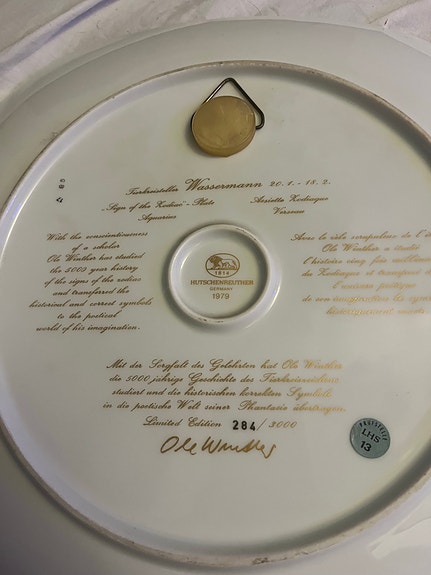 Tierkreisteller Wassermann 20.1. - 18.2.
„Sign of the Zodiac"-Plate
Aquarius
Assiette Zodiaque
Verseau
With the conscientiousness
of a scholar
Ole Winther has studied
the 5000 year history
of the signs of the zodiac
and transferred the
historical and correct symbols
to the poetical
world of his imagination.
1814
HUTSCHENREUTHER
GERMANY
1979
Avec le zèle scrupuleux de
Ole Winther a étudié
l'histoire cinq fois millénaire
du Zodiaque et transposé
l'univers poétique
de son imagination les symboles
historiquement exacts.
Mit der Sorgfalt des Gelehrten hat Ole Winther
die 5000 jährige Geschichte des Tierkreiszeichens
studiert und die historischen korrekten Symbole
in die poetische Welt seiner Phantasie übertragen.
Limited Edition 284 / 3000
Ole Winther
LHS
13